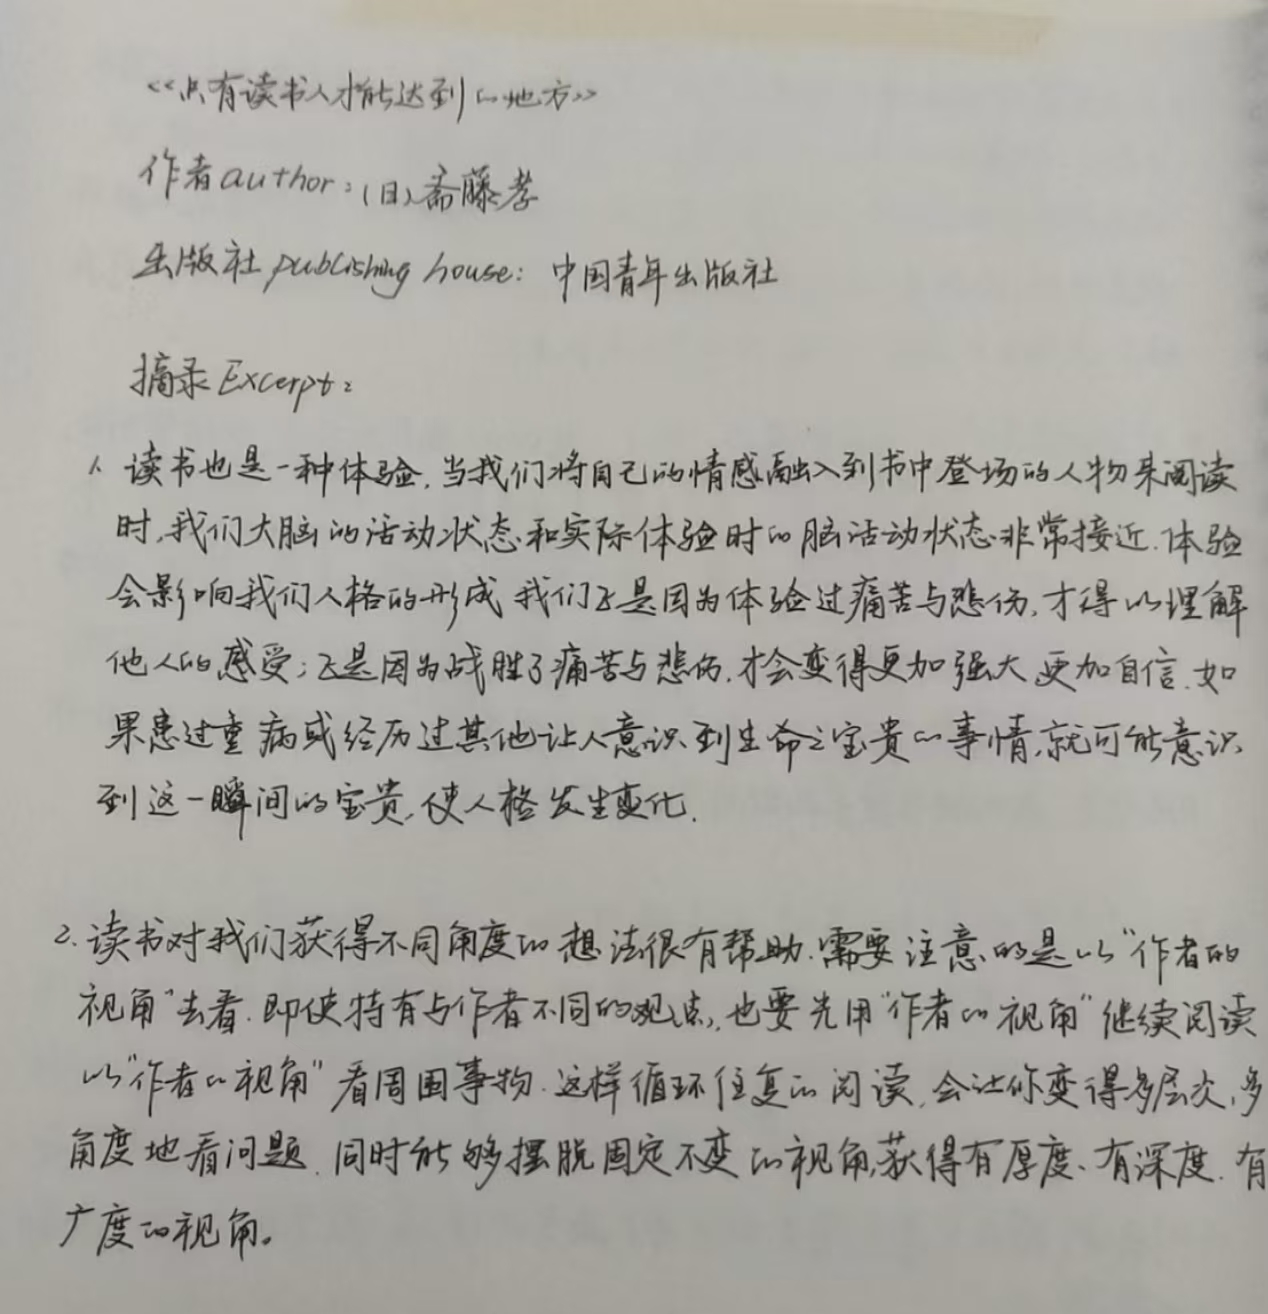 <<只有读书人才能达到的地方>>
作者author：(日)斋藤孝
出版社publishing house：中国青年出版社
摘录Excerpt：
1. 读书也是一种体验,当我们将自己的情感融入到书中登场的人物来阅读
时,我们大脑的活动状态和实际体验时的脑活动状态非常接近.体验
会影响我们人格的形成 我们正是因为体验过痛苦与悲伤,才得以理解
他人的感受;正是因为战胜了痛苦与悲伤,才会变得更加强大 更加自信.如
果患过重病或经历过其他让人意识到生命之宝贵的事情,就可能意识
到这一瞬间的宝贵,使人格发生变化.
2. 读书对我们获得不同角度的想法很有帮助.需要注意的是以“作者的
视角”去看.即使持有与作者不同的观点,也要先用“作者的视角”继续阅读
以“作者的视角”看周围事物.这样循环往复的阅读,会让你变得多层次,多
角度地看问题.同时能够摆脱固定不变的视角,获得有厚度、有深度.有
广度的视角。